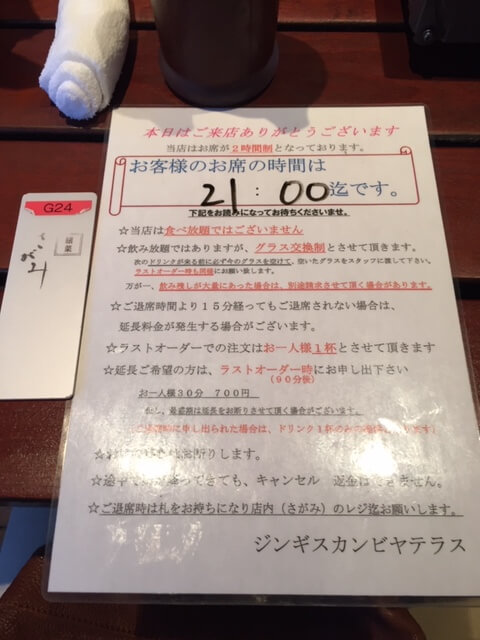 本日はご来店ありがとうございます
当店はお席が２時間制となっております。
お客様のお席の時間は
21：00迄です。
下記をお読みになってお待ちくださいませ。
G24
☆当店は食べ放題ではございません
☆飲み放題ではありますが、グラス交換制とさせて頂きます。
次のドリンクが来る前に必ず今のグラスを空けて、空いたグラスをスタッフに渡して下さい。
ラストオーダー時も同様にお願い致します。
万が一、飲み残しが大量にあった場合は、別途請求させて頂く場合があります。
☆ご退席時間より１５分経ってもご退席されない場合は、
延長料金が発生する場合がございます。
☆ラストオーダーでの注文はお一人様１杯とさせて頂きます
☆延長ご希望の方は、ラストオーダー時にお申し出下さい
（９０分後）
お一人様３０分　７００円
但し、最盛期は延長をお断りさせて頂く場合がございます。
ご退席時に申し出られた場合は、ドリンク１杯のみの
お断りします。
☆途中で雨が降ってきても、キャンセル　返金はできません。
☆ご退席時は札をお持ちになり店内（さがみ）のレジ迄お願いします。
ジンギスカンビヤテラス